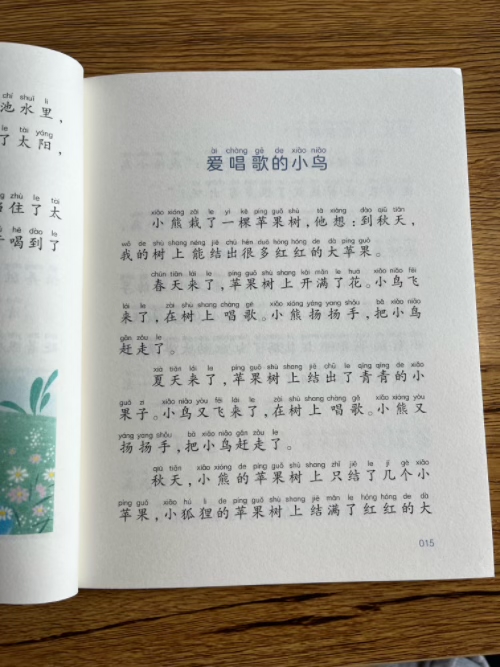 chí shuǐ lǐ
池水里，
le tài yáng
了太阳，
zhù le tài
住了太
hē dào le
喝到了
ài chàng gē de xiǎo niǎo
爱唱歌的小鸟
xiǎo xióng zāi le yì kē píng guǒ shù tā xiǎng dào qiū tiān
小熊栽了一棵苹果树，他想：到秋天，
wǒ de shù shang néng jiē chū hěn duō hóng hóng de dà píng guǒ
我的树上能结出很多红红的大苹果。
chūn tiān lái le píng guǒ shù shang kāi mǎn le huā xiǎo niǎo fēi
春天来了，苹果树上开满了花。小鸟飞
lái le zài shù shang chàng gē xiǎo xióng yáng yang shǒu bǎ xiǎo niǎo
来了，在树上唱歌。小熊扬扬手，把小鸟
gǎn zǒu le
赶走了。
xià tiān lái le píng guǒ shù shang jiē chū le qīng qīng de xiǎo
夏天来了，苹果树上结出了青青的小
guǒ zi xiǎo niǎo yòu fēi lái le zài shù shang chàng gē xiǎo xióng yòu
果子。小鸟又飞来了，在树上唱歌。小熊又
yáng yang shǒu bǎ xiǎo niǎo gǎn zǒu le
扬扬手，把小鸟赶走了。
qiū tiān xiǎo xióng de píng guǒ shù shang zhǐ jiē le jǐ gè xiǎo
秋天，小熊的苹果树上只结了几个小
píng guǒ xiǎo hú li de píng guǒ shù shang jiē mǎn le hóng hóng de dà
苹果，小狐狸的苹果树上结满了红红的大
015